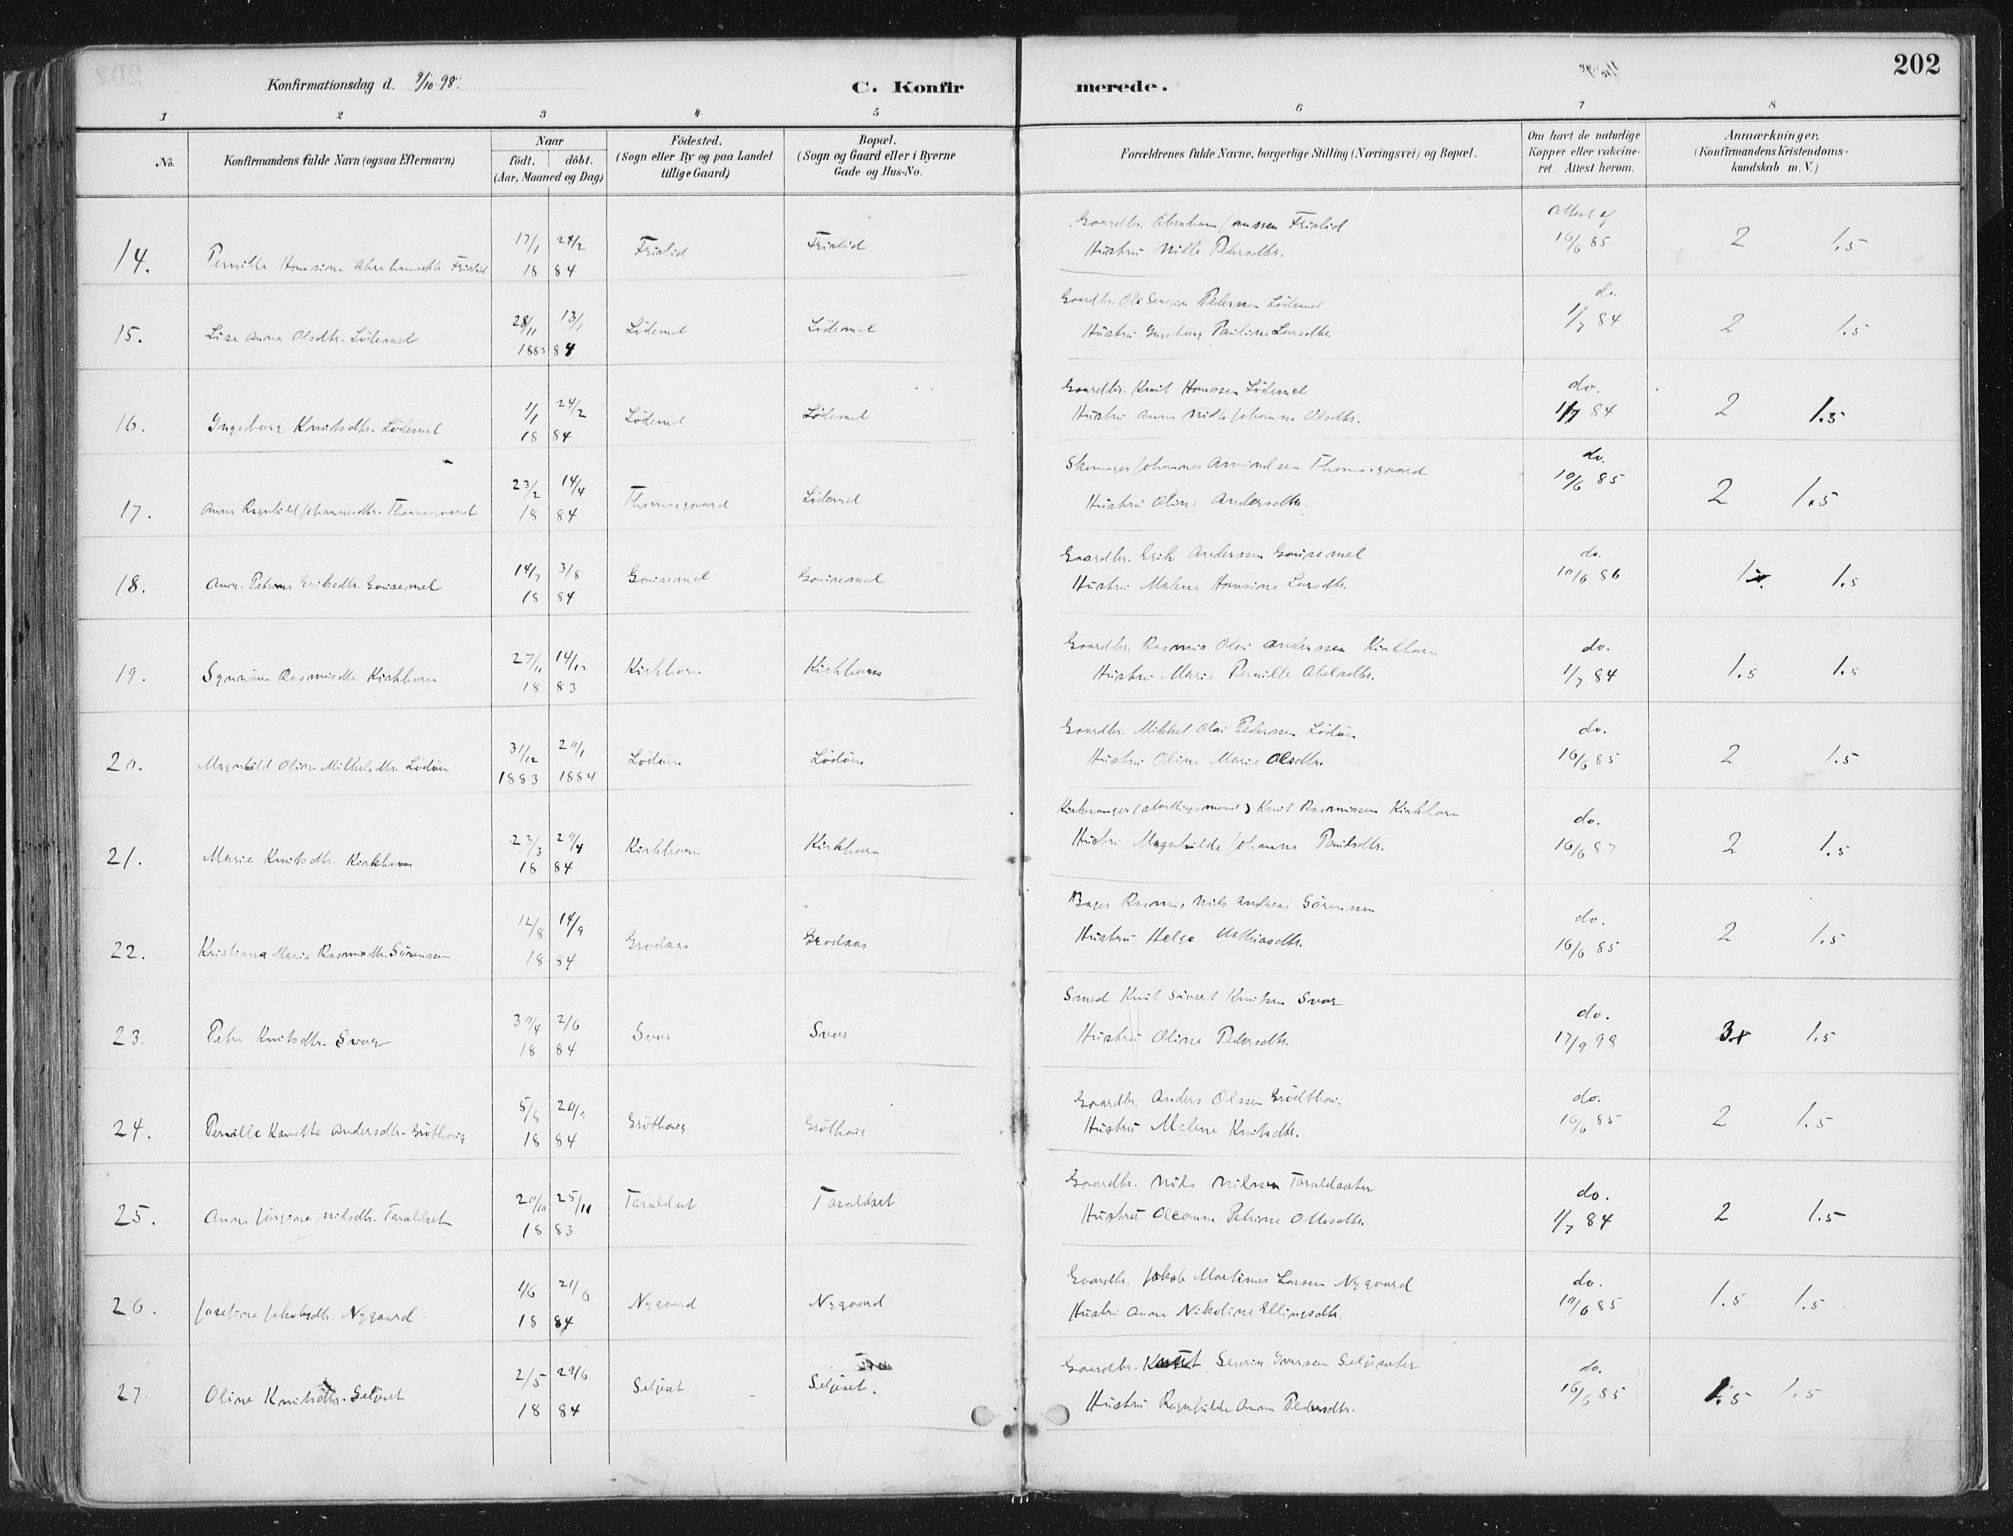 202
Konfirmationsdag d. 9/10 98.
C. Konfirmerede.
1 2 3 4 5 6 7 8
No.
Konfirmandens fulde Navn (ogsaa Efternavn)
Naar
født. døbt.
(Aar, Maaned og Dag)
Fødested.
(Sogn eller By og paa Landet
tillige Gaard)
Bopæl.
(Sogn og Gaard eller i Byerne
Gade og Hus-No.
Forældrenes fulde Navne, borgerlige Stilling (Næringsvei) og Bopæl.
Om havt de naturlige
Kopper eller vakcine-
ret. Attest herom.
Anmærkninger,
(Konfirmandens Kristendoms-
kundskab m. V.)
14. Pernille Hansine Abrahamsdtr. Frislid 17/1 24/2 Frislid Frislid
18 84
Gaardbr. Abraham Hanssen Frislid
Hustru Nille Pedersdtr.
Attest af
16/6 85 2 1.5
15. Lise Anna Olsdtr. Lødemel 28/11 13/1 Lødemel Lødemel
1883 84
Gaardbr. Ole Severin Pedersen Lødemel
Hustru Ingeborg Pauline Larsdtr.
do.
1/7 84 2 1.5
16. Ingeborg Knutsdtr. Lødemel 1/1 24/2 Lødemel Lødemel
18 84
Gaardbr. Knut Hanssen Lødemel
Hustru Anne Nille Johanne Olsdtr.
do.
1/7 84 2 1.5
17. Anna Ragnhild Johannesdtr. Thomasgaard 23/2 14/4 Thomasgaard Lødemel
18 84
Skomager Johannes Amundsen Thomasgaard
Hustru Oline Andersdtr.
do.
10/6 85 2 1.5
18. Anne Petrine Eriksdtr. Gausemel 14/7 3/8 Gausemel Gausemel
18 84
Gaardbr. Erik Anderssen Gausemel
Hustru Malene Hansine Larsdtr.
do.
10/6 86 1.5
19. Synnøve Rasmusdtr. Kirkhorn 27/11 14/12 Kirkhorn Kirkhorn
18 83
Gaardbr. Rasmus Olai Anderssen Kirkhorn
Hustru Marie Pernille Abelsdtr.
do.
1/7 84 1.5 1.5
20. Magnhild Oline Mikkelsdtr. Lødøen 31/12 20/1 Lødøen Lødøen
1883 1884
Gaardbr. Mikkel Olai Pedersen Lødøen
Hustru Oline Marie Olsdtr.
do.
16/6 85 2 1.5
21. Marie Knutsdtr. Kirkhorn 23/3 29/4 Kirkhorn Kirkhorn
18 84
Kirkesanger (stortingsmand) Knut Rasmussen Kirkhorn
Hustru Magnhilde Johanne Paulsdtr.
do.
16/6 87 2 1.5
22. Kristiana Marie Rasmusdtr. Sørenssen 12/8 14/9 Grodaas Grodaas
18 84
Bager Rasmus Nils Andreas Sørenssen
Hustru Helga Mathiasdtr.
do.
16/6 85 2 1.5
23. Petra Knutsdtr. Svor 30/4 2/6 Svor Svor
18 84
Smed Knut Sivert Knutsen Svor
Hustru Oline Pedersdtr.
do.
17/9 98 3 1.5
24. Pernille Knutte Andersdtr. Grøthaug 5/8 20/9 Grøthaug Grøthaug
18 84
Gaardbr. Anders Olssen Grødthaug
Hustru Malene Knutsdtr.
do.
16/6 85 2 1.5
25. Anne Jørgine Nilsdtr. Taraldset 20/10 25/11 Taraldset Taraldset
18 83
Gaardbr. Nils Nilssen Taraldsæter
Hustru Oleanna Petrine Ottesdtr.
do.
1/7 84 2 1.5
26. Josefine Jakobsdtr. Nygaard 1/6 21/6 Nygaard Nygaard
18 84
Gaardbr. Jakob Martinus Larsen Nygaard
Hustru Anne Nikoline Ellingsdtr.
do.
10/6 85 1.5 1.5
27. Oline Knutsdtr. Seljeset 2/5 29/6 Seljeset Seljeset.
18 84
Gaardbr. Knut Severin Iversen Seljesæter
Hustru Ragnhilde Anna Pedersdtr.
do.
16/6 85 1.5 1.5